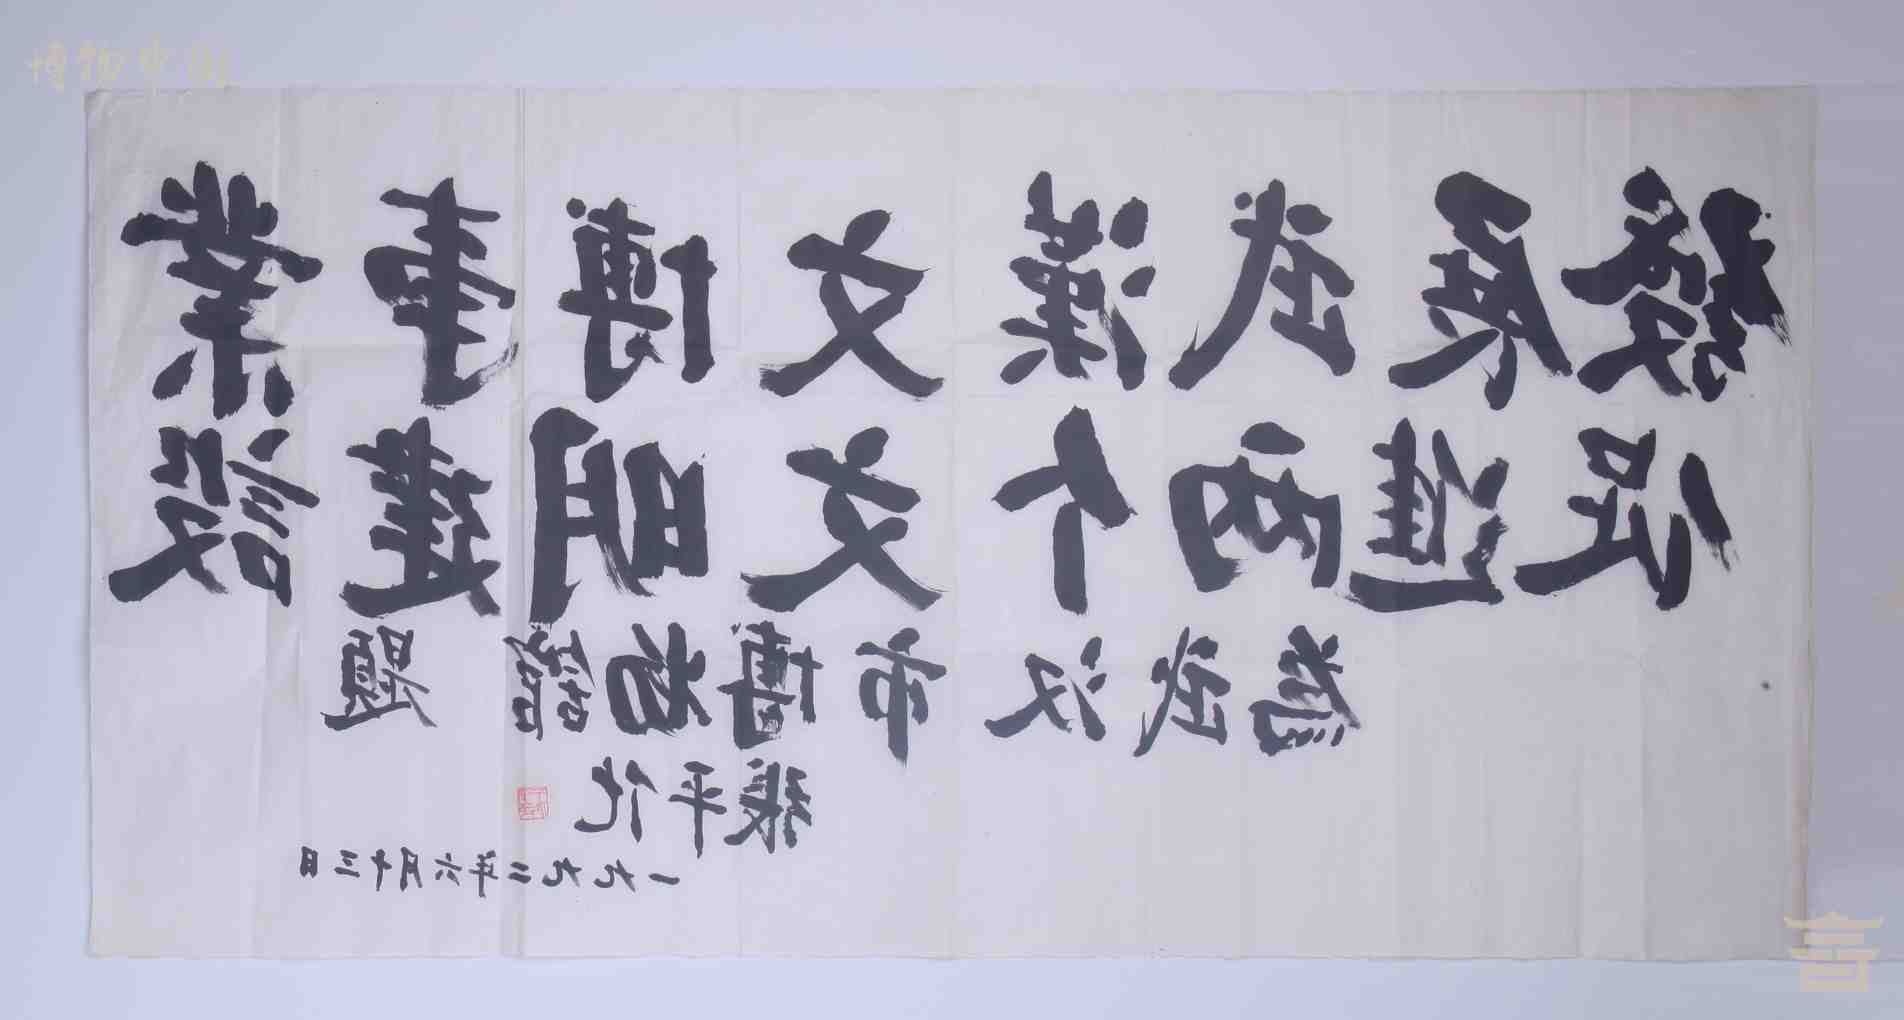 博物中国
發展武漢文博事業
促進两个文明建設
為武汉市博物館 題
張平化
一九九二年六月十三日